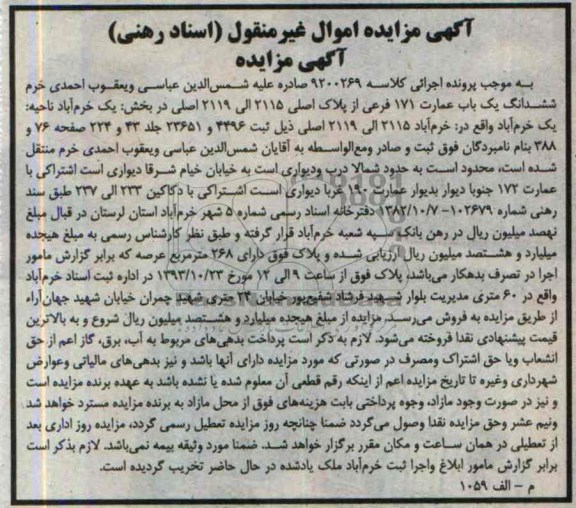 آگهی مزایده اموال غیرمنقول (اسناد رهنی)
آگهی مزایده
به موجب پرونده اجرائی کلاسه ۹۲۰۰۲۶۹ صادره علیه شمس‌الدین عباسی ویعقوب احمدی خرم
ششدانگ یک باب عمارت ۱۷۱ فرعی از پلاک اصلی ۲۱۱۵ الی ۲۱۱۹ اصلی در بخش: یک خرم‌آباد ناحیه:
یک خرم‌آباد واقع در: خرم‌آباد ۲۱۱۵ الی ۲۱۱۹ اصلی ذیل ثبت ۴۴۹۶ و ۲۳۶۵۱ جلد ۴۳ و ۲۲۴ صفحه ۷۶ و
۳۸۸ بنام نامبردگان فوق ثبت و صادر ومع‌الواسطه به آقایان شمس‌الدین عباسی ویعقوب احمدی خرم منتقل
شده است، محدود است به حدود شمالا درب ودیواری است به خیابان خیام شرقا دیواری است اشتراکی با
عمارت ۱۷۲ جنوبا دیوار بدیوار عمارت ۱۹۰ غربا دیواری است اشتراکی با دکاکین ۲۳۳ الی ۲۳۷ طبق سند
رهنی شماره ۱۰۲۶۷۹- ۱۳۸۲/۱۰/۷ دفترخانه اسناد رسمی شماره ۵ شهر خرم‌آباد استان لرستان در قبال مبلغ
نهصد میلیون ریال در رهن بانک سپه شعبه خرم‌آباد قرار گرفته و طبق نظر کارشناس رسمی به مبلغ هیجده
میلیارد و هشتصد میلیون ریال ارزیابی شده و پلاک فوق دارای ۲۶۸ مترمربع عرصه که برابر گزارش مامور
اجرا در تصرف بدهکار می‌باشد، پلاک فوق از ساعت ۹ الی ۱۲ مورخ ۱۳۹۳/۱۰/۲۳ در اداره ثبت اسناد خرم‌آباد
واقع در ۶۰ متری مدیریت بلوار شهید فرشاد شفیع‌پور خیابان ۲۴ متری شهید چمران خیابان شهید جهان‌آراء
از طریق مزایده به فروش می‌رسد. مزایده از مبلغ هیجده میلیارد و هشتصد میلیون ریال شروع و به بالاترین
قیمت پیشنهادی نقدا فروخته می‌شود. لازم به ذکر است پرداخت بدهی‌های مربوط به آب، برق، گاز اعم از حق
انشعاب ویا حق اشتراک ومصرف در صورتی که مورد مزایده دارای آنها باشد و نیز بدهی‌های مالیاتی وعوارض
شهرداری وغیره تا تاریخ مزایده اعم از اینکه رقم قطعی آن معلوم شده یا نشده باشد به عهده برنده مزایده است
و نیز در صورت وجود مازاد، وجوه پرداختی بابت هزینه‌های فوق از محل مازاد به برنده مزایده مسترد خواهد شد
ونیم عشر وحق مزایده نقدا وصول می‌گردد ضمنا چنانچه روز مزایده تعطیل رسمی گردد، مزایده روز اداری بعد
از تعطیلی در همان ساعت و مکان مقرر برگزار خواهد شد. ضمنا مورد وثیقه بیمه نمی‌باشد. لازم بذکر است
برابر گزارش مامور ابلاغ واجرا ثبت خرم‌آباد ملک یادشده در حال حاضر تخریب گردیده است.
م - الف ۱۰۵۹